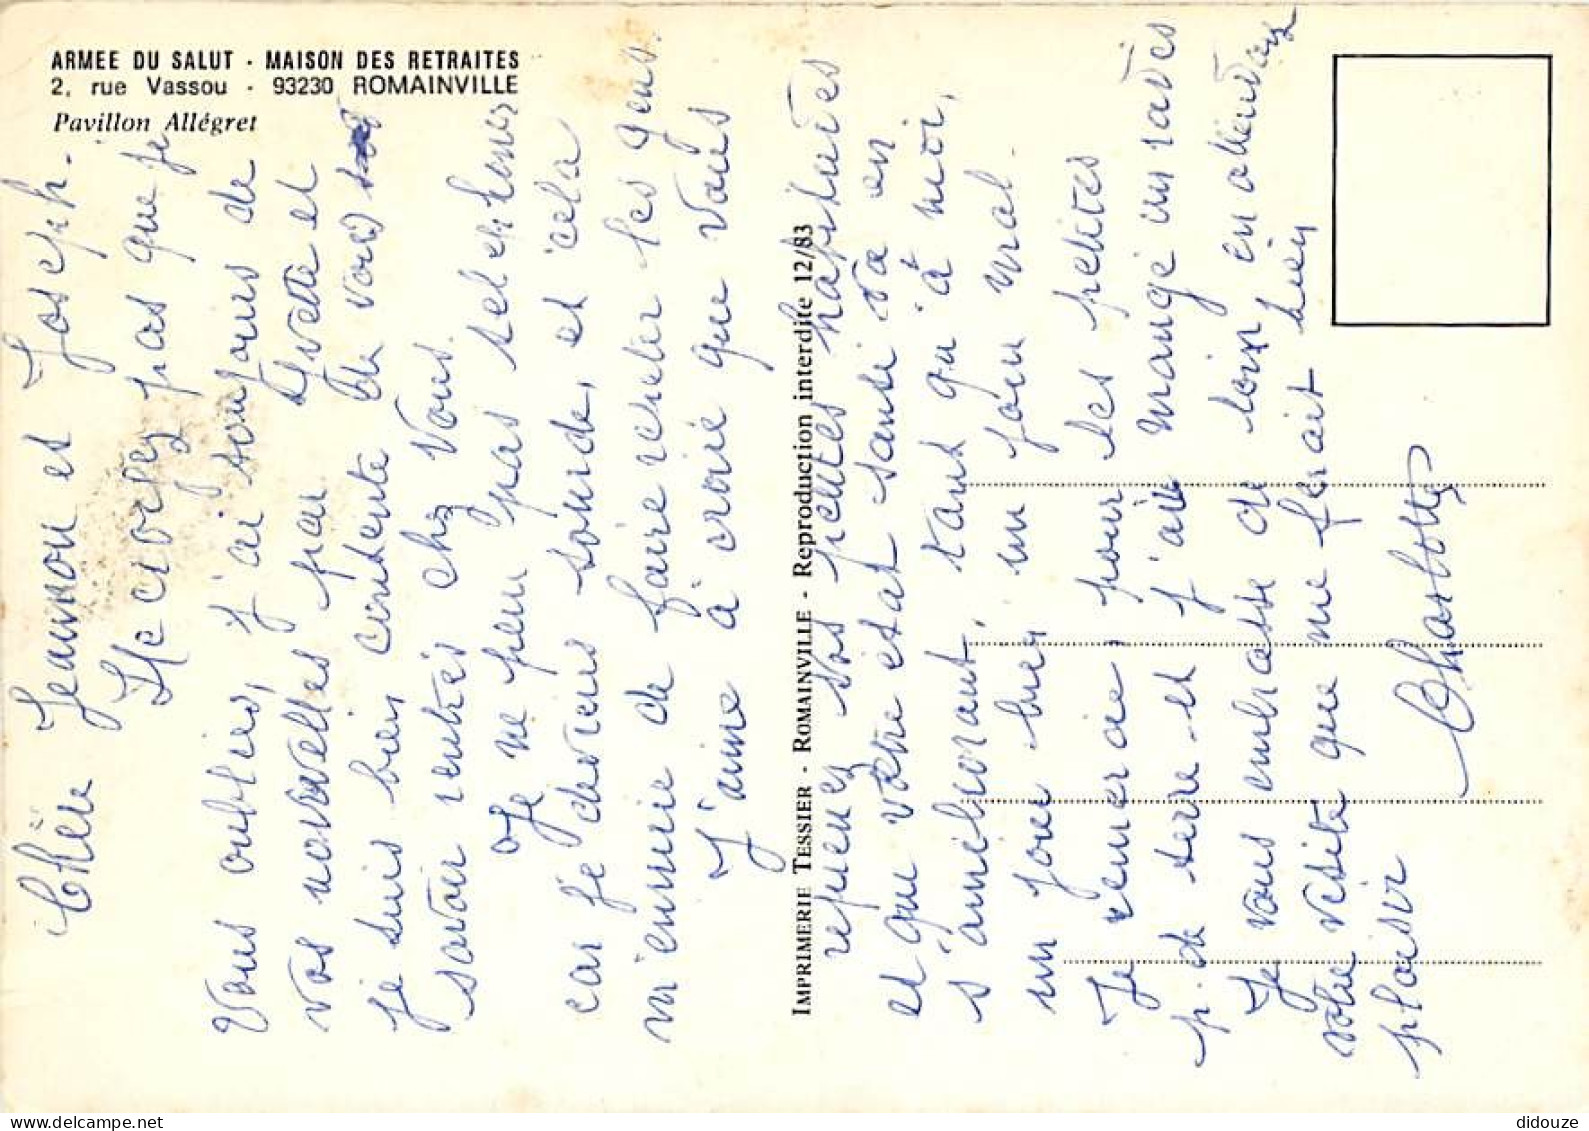 ARMEE DU SALUT - MAISON DES RETRAITES
2, rue Vassou - 93230 ROMAINVILLE
Pavillon Allégret
Chère Jeannon et Joseph.
Ne croyez pas que je
vous oublies, j'ai toujours de
vos nouvelles par Yvette et
je suis bien contente de vous
savoir rentrés chez vous.
Je ne peux pas telephoner
car je deviens sourde, et cela
m'ennuie de faire repeter les gens.
J'aime à croire que vous
IMPRIMERIE TESSIER - ROMAINVILLE - Reproduction interdite 12/83
reprenez vos petites habitudes
et que votre état santé va en
s'améliorant, tant qu'à moi,
un jour bien, un jour mal.
Je remercie, pour les petites
p. de terre et j'ai mangé un radis
Je vous embrasse de loin en attendant
votre visite que me ferait bien
plaisir
Charlotte
didouze